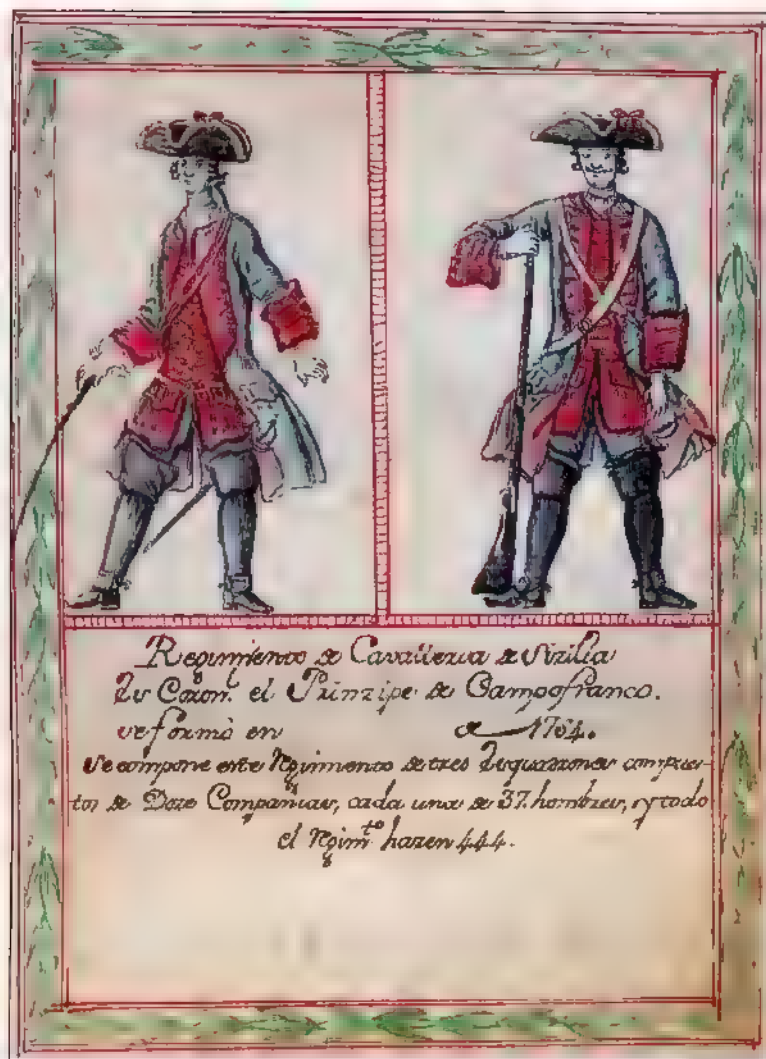 Regimiento de Cavalleria de Sizilia
Su Coron.l el Prinzipe de Campofranco.
se formò en de 1754.
Se compone este Regimiento de tres Esquadrones compues-
tos de Doze Companias, cada una de 37. hombres, y todo
el Regim.to hazen 444.